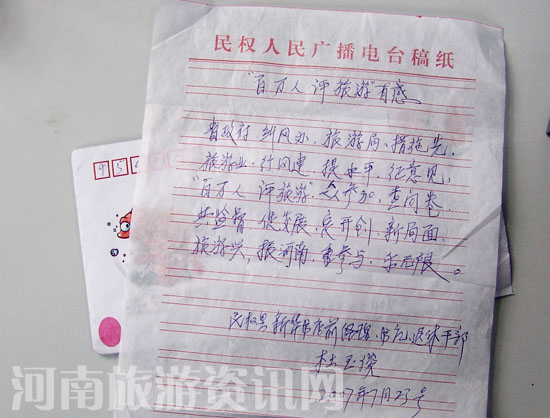 民权人民广播电台稿纸
"百万人评旅游"有感
省政府纠风办、旅游局、措施先,
旅游业、行风建、提水平、征意见,
"百万人评旅游"、众参加、查问卷,
共监督、促发展、定开创、新局面,
旅游兴、振河南、重参与、乐无限。
民权县新华书店前经理、书记、退休干部
杜玉
2007年7月23号
河南旅游资讯网